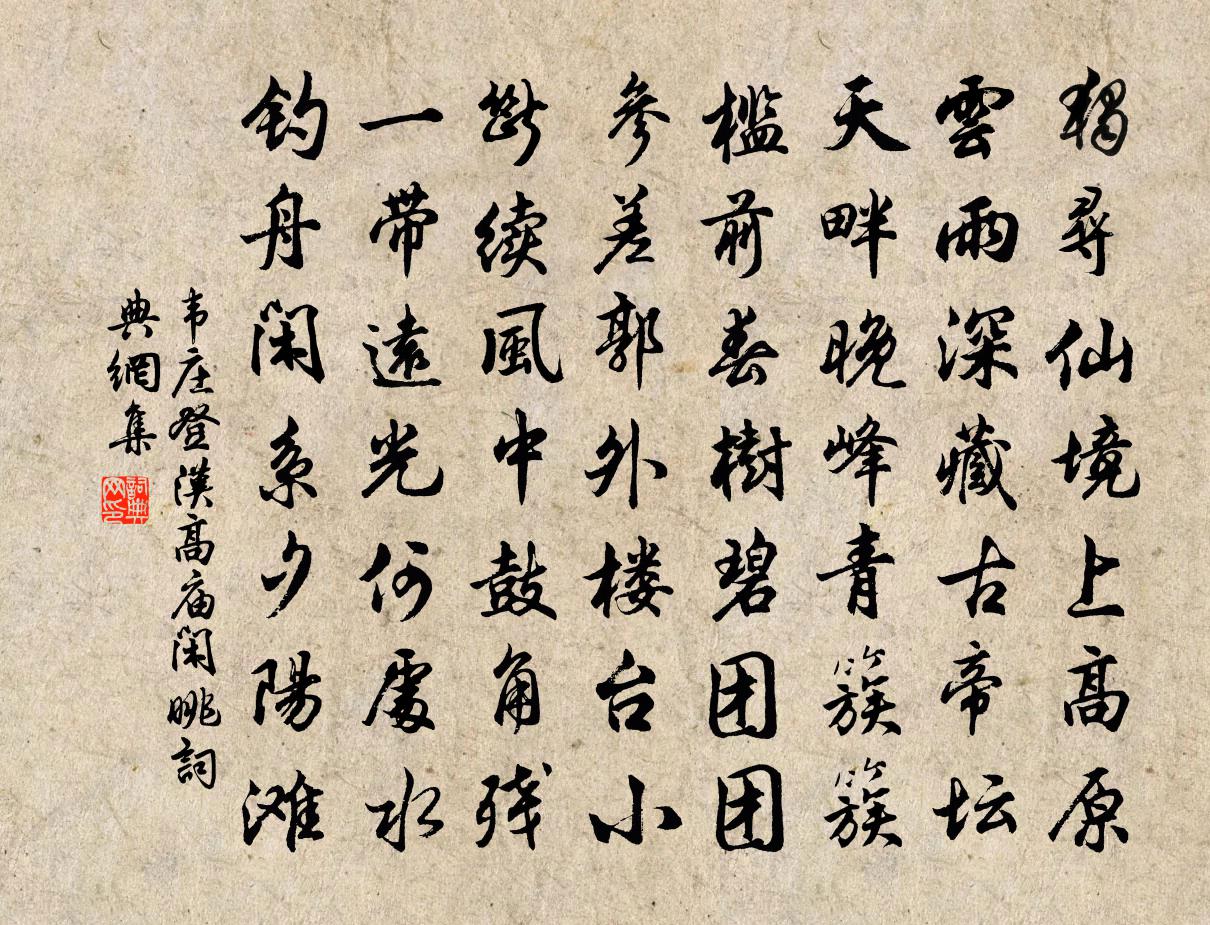 獨尋仙境上高原
雲雨深藏古帝坛
天畔晚峰青簇簇
檻前春樹碧团团
參差郭外楼台小
斷續風中鼓角残
一帶遠光何處水
钓舟閑系夕陽滩
韦庄登漢高庙閑眺詞
典網集
詞典
网印